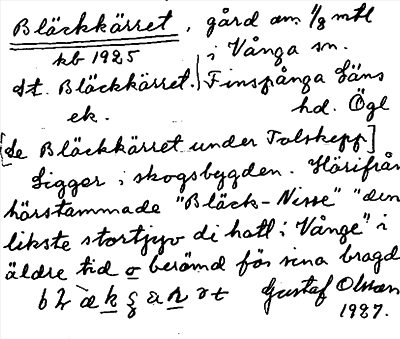 Bläckkärret, gård om 1/8 mtl
kb 1925 i Vånga sn.
St. Bläckkärret. Finspånga läns
ek. hd. Ögl
[Se Bläckkärret under Tolskepp]
Ligger i skogsbygden. Härifrån
härstammade "Bläck-Nisse" "den
likste stortjyv di hatt i Vånge" i
äldre tid o berömd för sina bragd
Gustaf Olsson
1927.